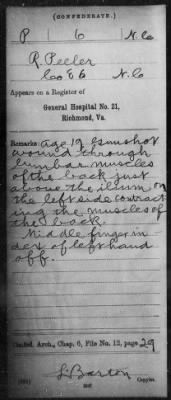 (CONFEDERATE.)
P | 6 | N.C.
R. Peeler
Co E 6 N.C.
Appears on a Register of
General Hospital No. 21,
Richmond, Va.
Remarks: Age 19 Gunshot
wound through
lumbar muscles
of the back just
above the ilium on
the left side contract
ing the muscles of
the back.
Middle finger in
dex of left hand
off.
Confed. Arch., Chap. 6, File No. 12, page 29
L. Barton
Copyist.